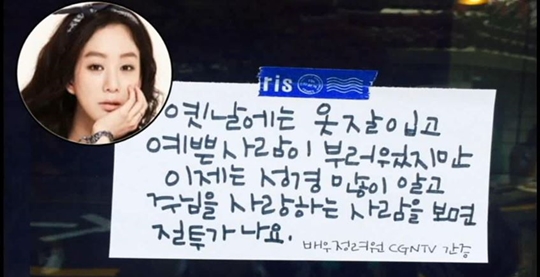 ris
옛날에는 옷 잘 입고
예쁜 사람이 부러웠지만
이제는 성경 많이 알고
주님을 사랑하는 사람을 보면
질투가 나요.
배우 정려원 CGNTV 간증